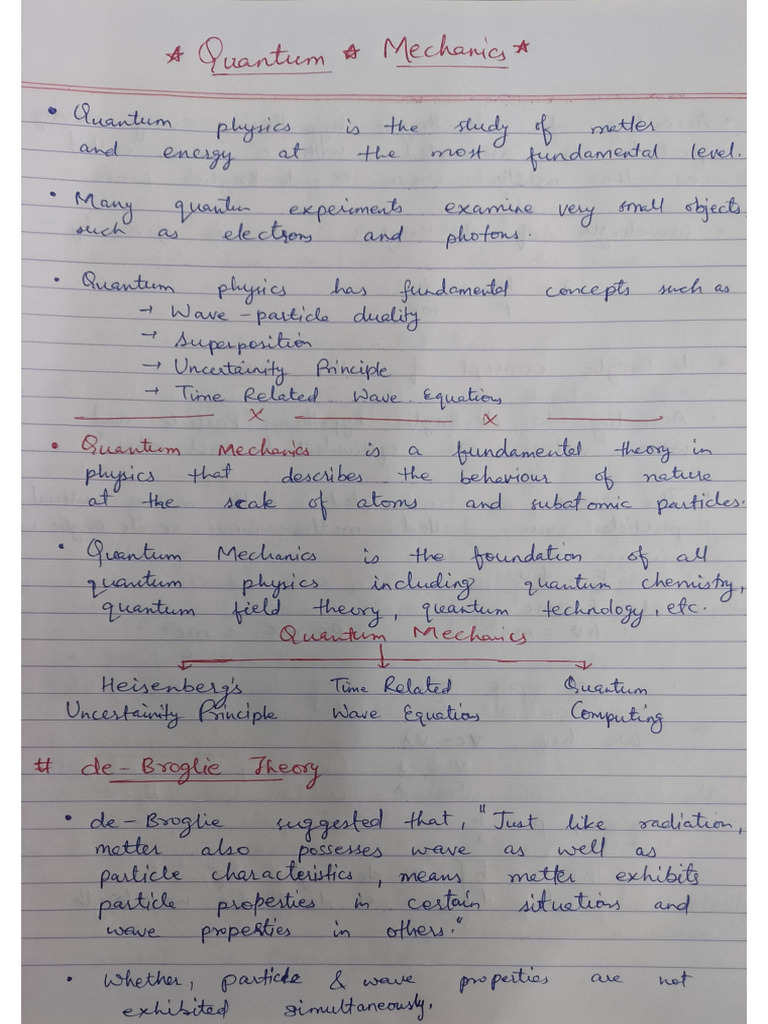 * Quantum * Mechanics *
• Quantum physics is the study of matter
and energy at the most fundamental level.
• Many quantum experiments examine very small objects
such as electrons and photons.
• Quantum physics has fundamental concepts such as
→ Wave-particle duality
→ Superposition
→ Uncertainity Principle
→ Time Related Wave Equations
x x
• Quantum Mechanics is a fundamental theory in
physics that describes the behaviour of nature
at the scale of atoms and subatomic particles.
• Quantum Mechanics is the foundation of all
quantum physics including quantum chemistry,
quantum field theory, quantum technology, etc.
Quantum Mechanics
Heisenberg's Time Related Quantum
Uncertainity Principle Wave Equations Computing
# de-Broglie Theory
• de-Broglie suggested that, "Just like radiation,
matter also possesses wave as well as
particle characteristics, means matter exhibits
particle properties in certain situations and
wave properties in others."
• Whether, particle & wave properties are not
exhibited simultaneously.